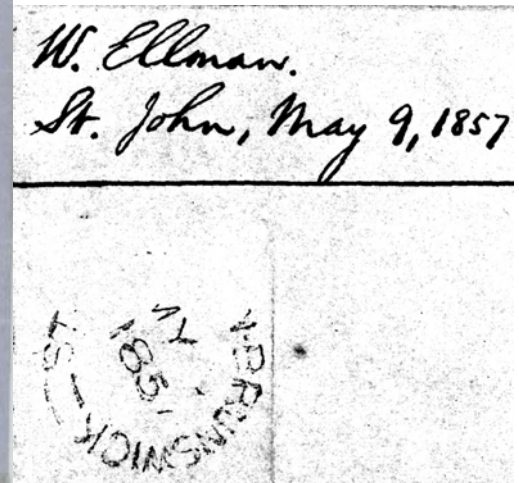 W. Ellman.
St. John, May 9, 1857
ST
N-BRUNSWICK
185